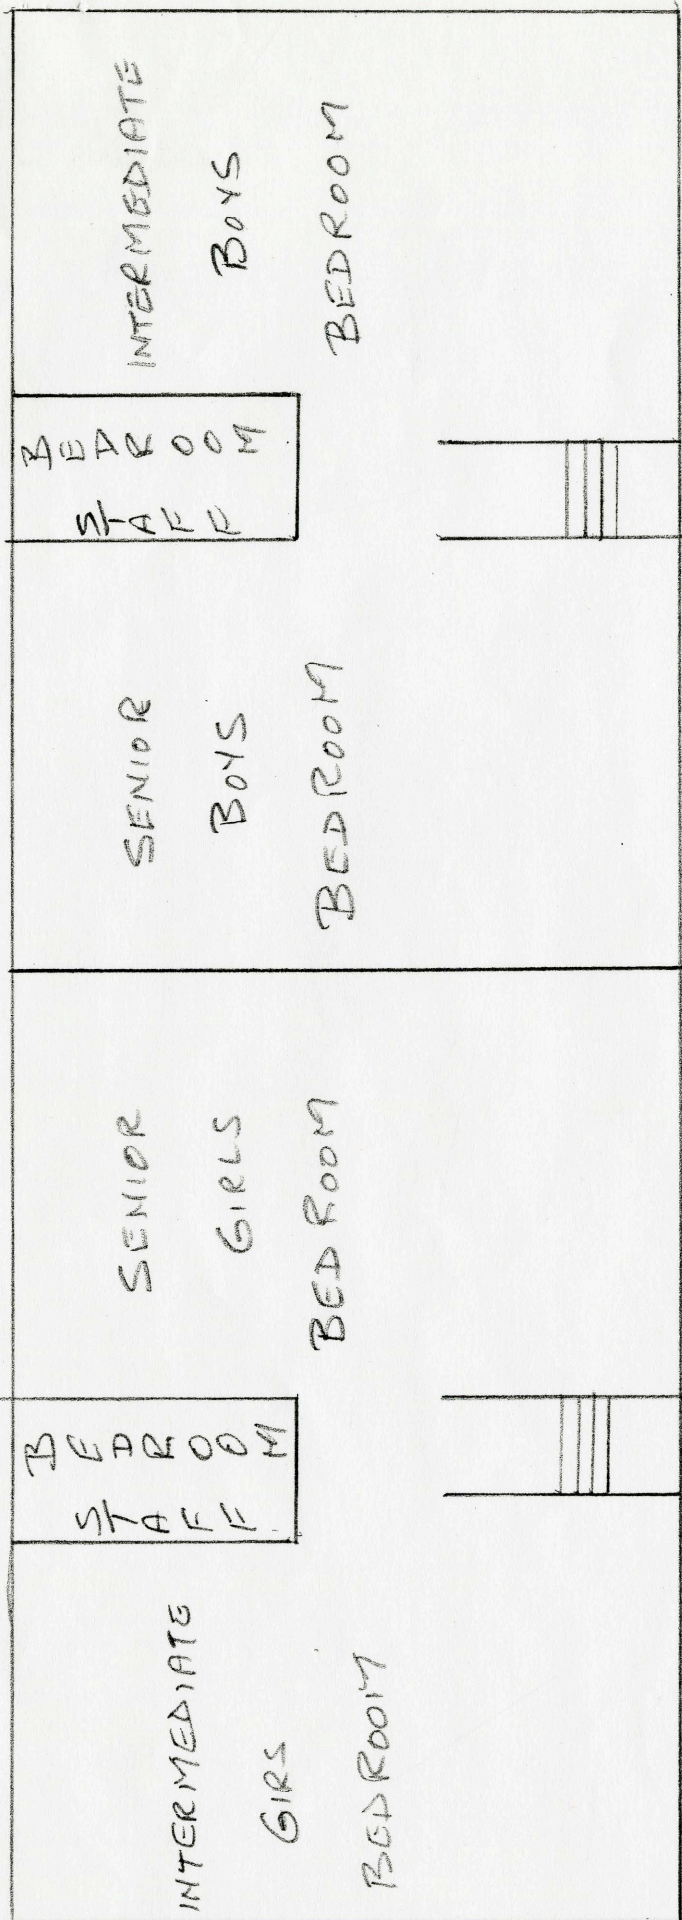 INTERMEDIATE
GIRS
BEDROOM
STAFF
BEDROOM
SENIOR
GIRLS
BEDROOM
SENIOR
BOYS
BEDROOM
STAFF
BEDROOM
INTERMEDIATE
BOYS
BEDROOM